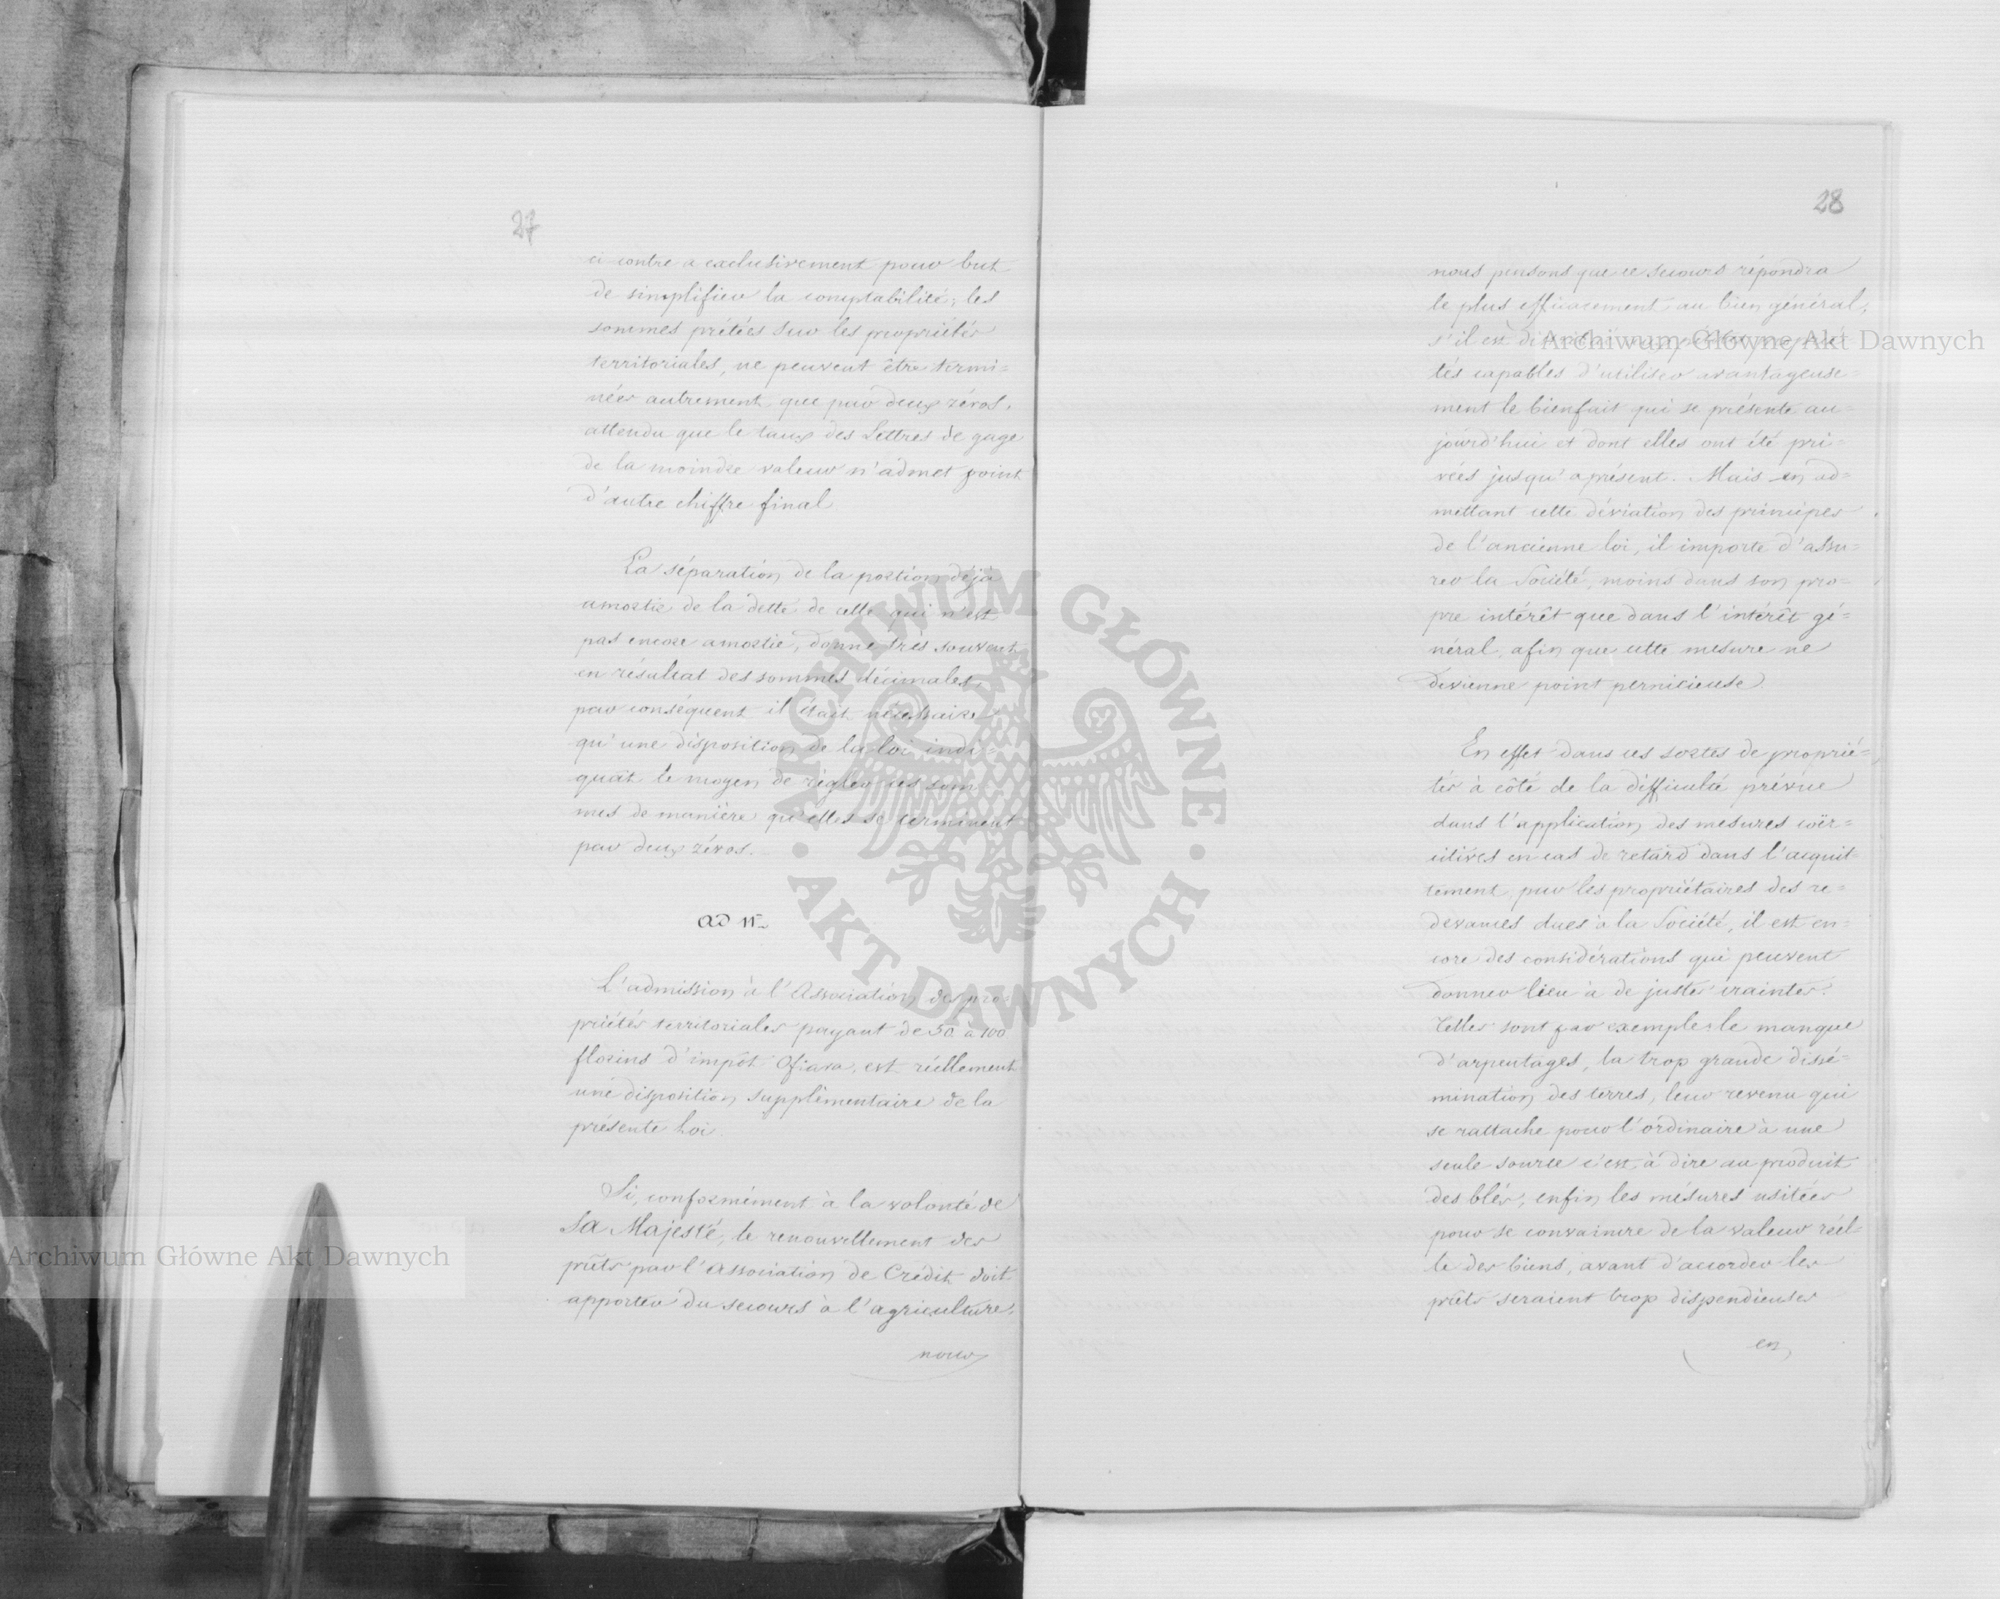 27
ci contre a exclusivement pour but
de simplifier la comptabilité; les
sommes prêtées sur les propriétés
territoriales, ne peuvent être termi=
nées autrement que par deux zéros,
attendu que le taux des Lettres de gage
de la moindre valeur n'admet point
d'autre chiffre final.
La séparation de la portion déjà
amortie de la dette de celle qui n'est
pas encore amortie, donne très souvent
en résultat des sommes décimales,
par conséquent il était nécessaire
qu'une disposition de la loi indi=
quât le moyen de régler ces som
mes de manière qu'elles se terminent
par deux zéros.
ad 11
L'admission à l'Association des pro=
priétés territoriales payant de 50 à 100
florins d'impôt Ofiara, est réellement
une disposition supplémentaire de la
présente Loi.
Si, conformément à la volonté de
Sa Majesté, le renouvellement des
prêts par l'Association de Crédit doit
apporter du secours à l'agriculture,
nous
28
nous pensons que ce secours répondra
le plus efficacement au bien général,
s'il est
tés capables d'utiliser avantageuse=
ment le bienfait qui se présente au=
jourd'hui et dont elles ont été pri=
vées jusqu'à présent. Mais en ad=
mettant cette déviation des principes
de l'ancienne loi, il importe d'assu=
rer la Société, moins dans son pro=
pre intérêt que dans l'intérêt gé=
néral, afin que cette mesure ne
devienne point pernicieuse.
En effet dans ces sortes de proprié=
tés à côté de la difficulté prévue
dans l'application des mesures coër=
citives en cas de retard dans l'acquit=
tement par les propriétaires des re=
devances dues à la Société, il est en=
core des considérations qui peuvent
donner lieu à de justes craintes.
Telles sont par exemple le manque
d'arpentages, la trop grande dissé=
mination des terres, leur revenu qui
se rattache pour l'ordinaire à une
seule source c'est à dire au produit
des blés, enfin les mésures usitées
pour se convaincre de la valeur réel=
le des biens, avant d'accorder les
prêts seraient trop dispendieuses
en
Archiwum Główne Akt Dawnych
Archiwum Główne Akt Dawnych
ARCHIWUM GŁÓWNE
AKT DAWNYCH